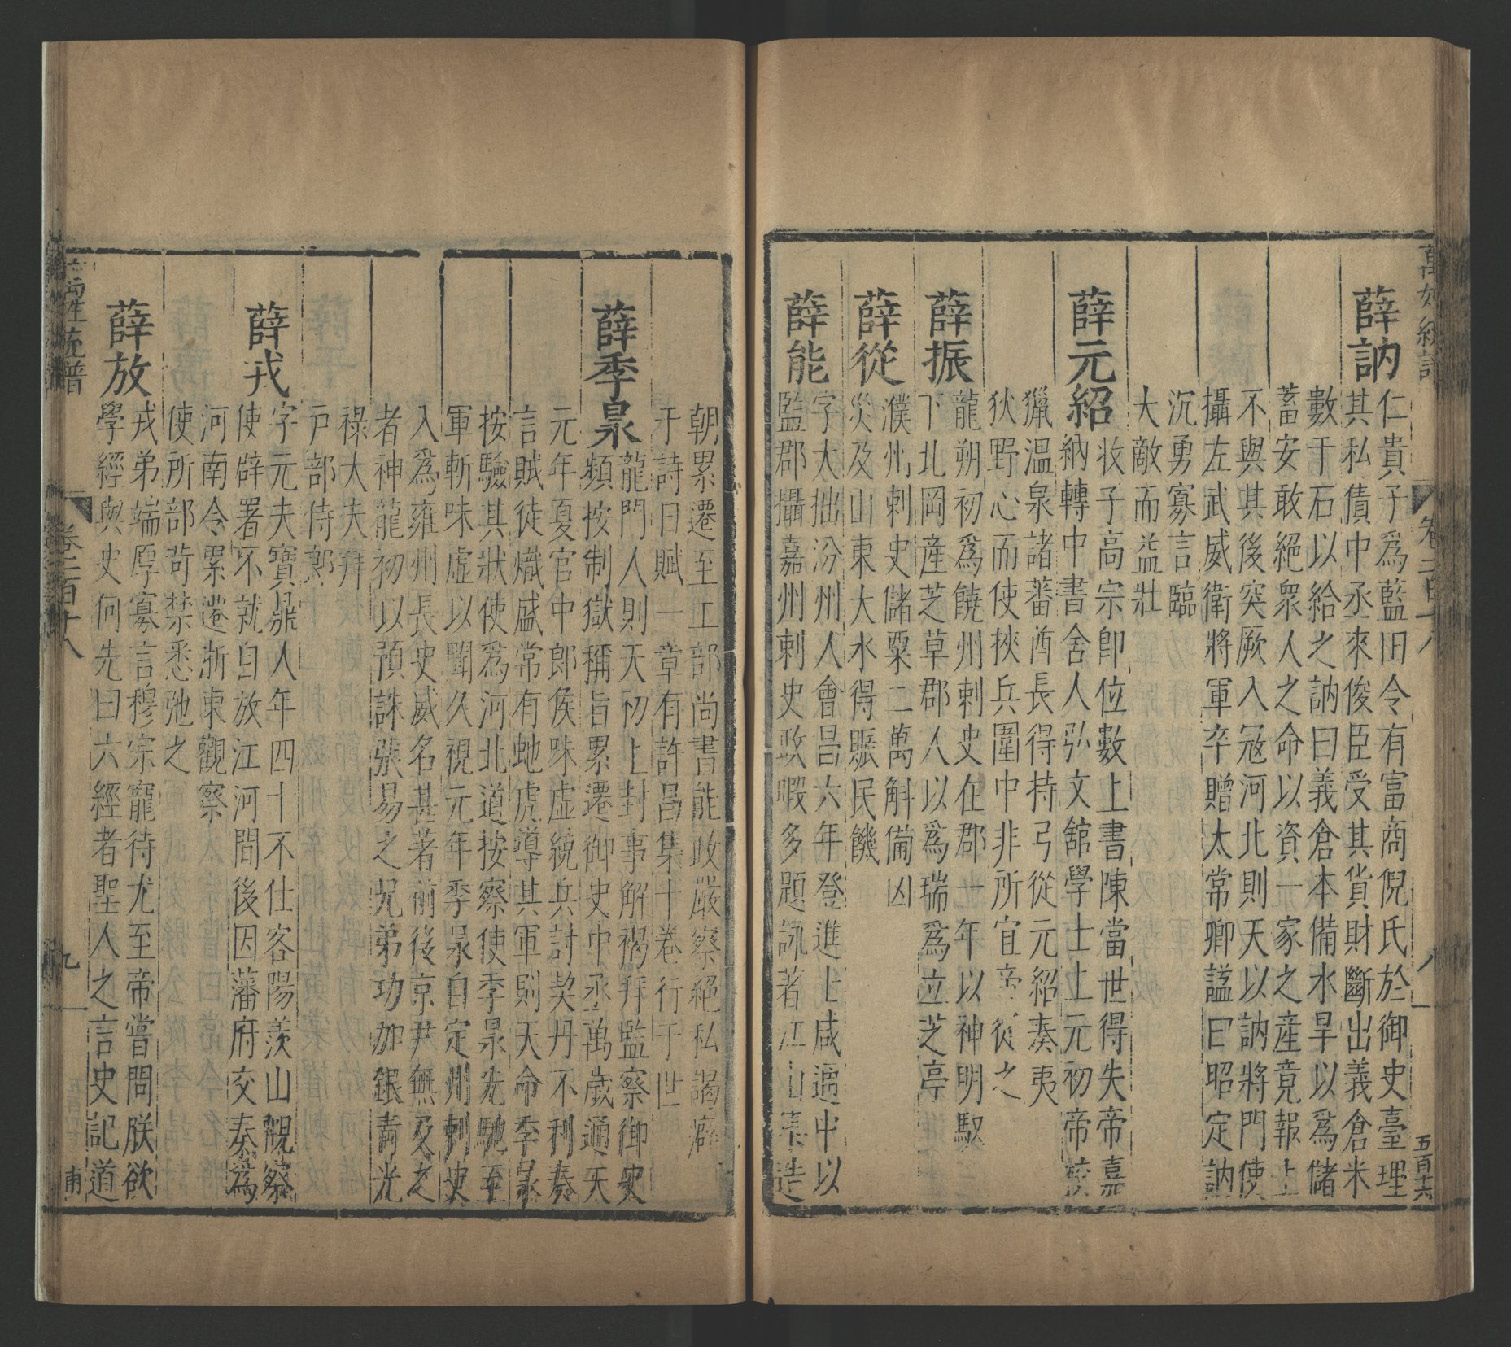 薛訥
仁貴子爲藍田令有富商倪氏於御史臺理
其私債中丞來俊臣受其貨財斷出義倉米
數千石以給之訥曰義倉本備水旱以爲儲
蓄安敢絕衆人之命以資一家之產竟報上
不與其後突厥入寇河北則天以訥將門使
攝左武威衛將軍卒贈太常卿謚曰昭定訥
沉勇寡言臨
大敵而益壯
薛元紹
收子高宗卽位數上書陳當世得失帝嘉
納轉中書舍人弘文舘學士上元初帝校
獵溫泉諸蕃酋長得持弓從元紹奏夷
狄野心而使挾兵圍中非所宜帝從之
薛振
龍朔初爲饒州刺史在郡一年以神明馭
下北岡產芝草郡人以爲瑞爲立芝亭
薛從
濮州刺史儲粟二萬斛備凶
災及山東大水得賑民饑
薛能
字大拙汾州人會昌六年登進士咸通中以
監郡攝嘉州刺史政暇多題詠著江山集造
朝累遷至工部尚書能政嚴察絕私謁癖
于詩日賦一章有許昌集十卷行于世
薛季昶
龍門人則天初上封事解褐拜監察御史
頻按制獄稱旨累遷御史中丞萬歲通天
元年夏官中郎侯味虛統兵討契丹不利奏
言賊徒熾盛常有虵虎導其軍則天命季昶
按驗其狀使爲河北道按察使季昶先馳至
軍斬味虛以聞久視元年季昶自定州刺史
入爲雍州長史威名甚著前後京尹無及之
者神龍初以預誅張易之兄弟功加銀青光
祿大夫拜
戶部侍郎
薛戎
字元夫寶鼎人年四十不仕客陽羨山觀察
使辟署不就自放江河間後因藩府交奏爲
河南令累遷浙東觀察
使所部苛禁悉弛之
薛放
戎弟端厚寡言穆宗寵待尤至帝嘗問朕欲
學經與史何先曰六經者聖人之言史記道
卷
八
五百六
九
甫